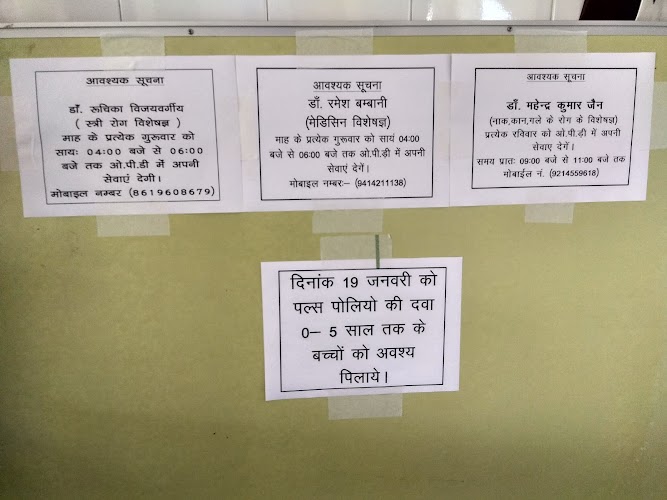 आवश्यक सूचना
डाॅ. रूचिका विजयवर्गीय
( स्त्री रोग विशेषज्ञ )
माह के प्रत्येक गुरूवार को
सायः 04:00 बजे से 06:00
बजे तक ओ.पी.डी में अपनी
सेवाएं देगी।
मोबाइल नम्बर (8619608679)
आवश्यक सूचना
डाॅ. रमेश बम्बानी
(मेडिसिन विशेषज्ञ)
माह के प्रत्येक गुरूवार को सायं 04:00
बजे से 06:00 बजे तक ओ.पी.डी में अपनी
सेवाएं देगें।
मोबाइल नम्बरः– (9414211138)
आवश्यक सूचना
डाॅ. महेन्द्र कुमार जैन
(नाक,कान,गले के रोग के विशेषज्ञ)
प्रत्येक रविवार को ओ.पी.डी में अपनी
सेवाएं देगें।
समय प्रातः 09:00 बजे से 11:00 बजे तक
मोबाईल नं. (9214559618)
दिनांक 19 जनवरी को
पल्स पोलियो की दवा
0– 5 साल तक के
बच्चों को अवश्य
पिलाये।